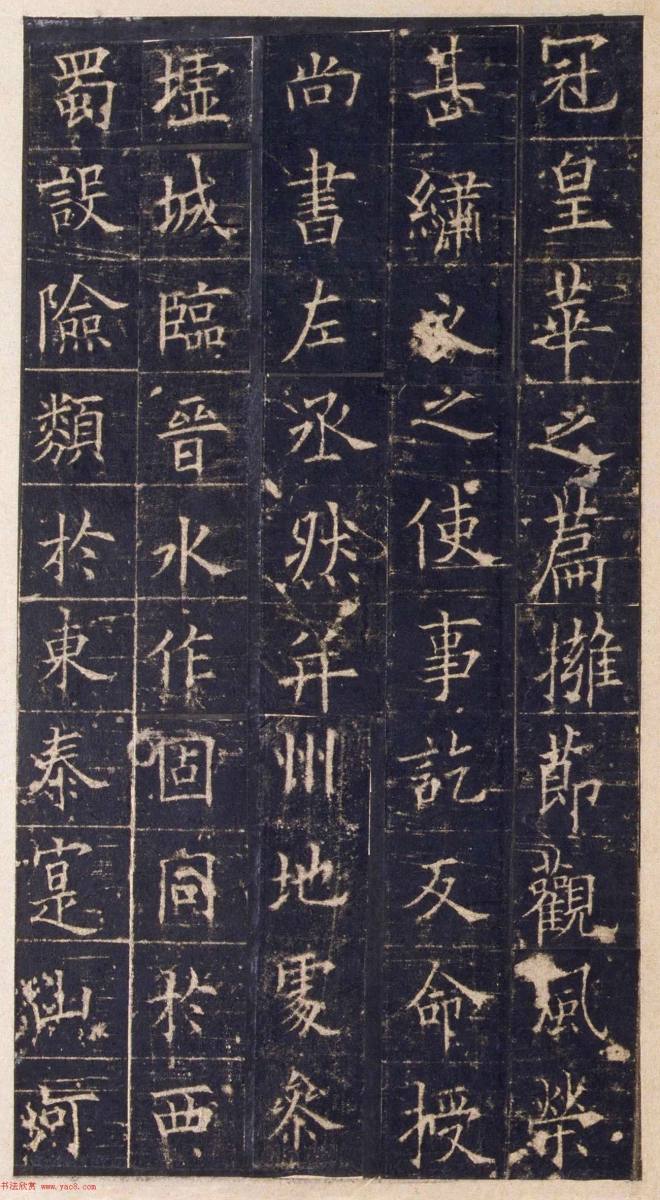 冠皇華之篇擁節觀風榮
甚繡衣之使事訖反命授
尚書左丞然并州地處叅
墟城臨晉水作固同於西
蜀設險類於東秦寔山河
书法欣赏 www.yac8.com